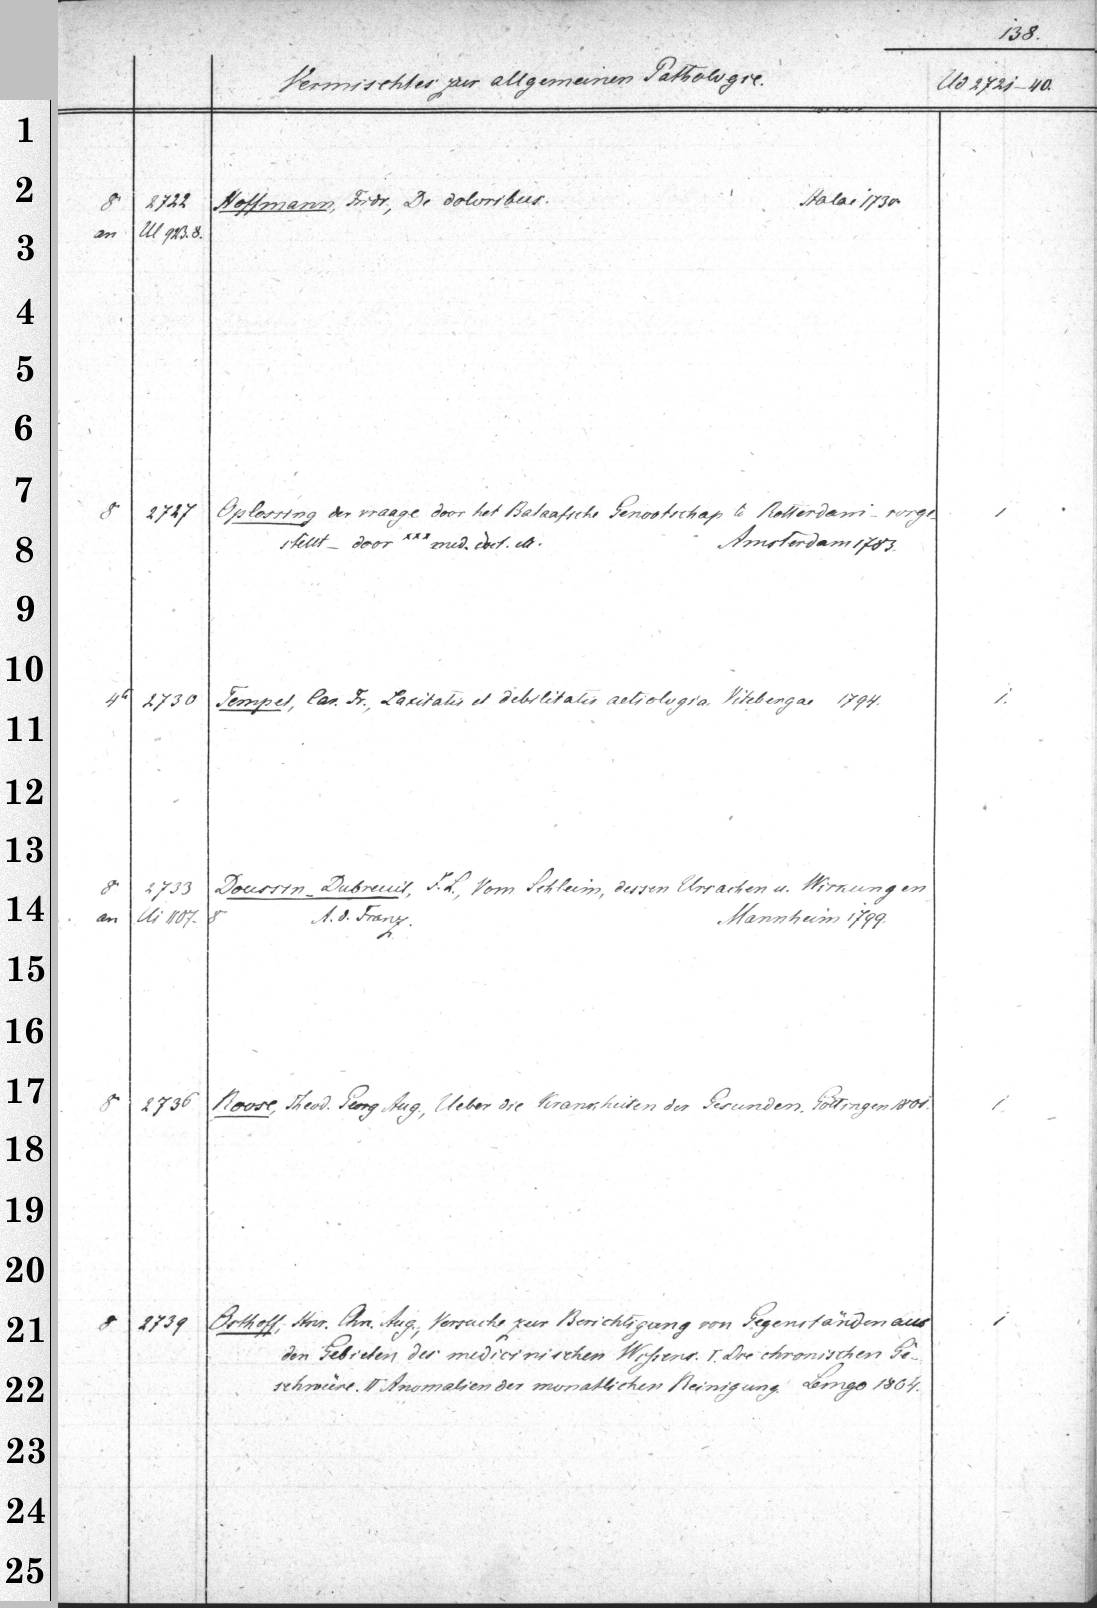 138.
Vermischtes zur allgemeinen Pathologie. Ud 2721-40.
1
2
3
4
5
6
7
8
9
10
11
12
13
14
15
16
17
18
19
20
21
22
23
24
25
8 2722 Hoffmann, Fridr., De doloribus. Halae 1730
an Ul 923.8.
8 2727 Oplossing der vraage door het Bataafsche Genootschap te Rotterdam - vorge-
stellt - door xxx med. doct. etc. Amsterdam 1783. 1
4° 2730 Tempel, Car. Fr., Laxitatis et debilitatis aetiologia. Vitebergae 1794. 1.
8 2733 Doussin-Dubreuil, J. L., Vom Schleim, dessen Ursachen u. Wirkungen
an Ui 1107. 8 A. d. Franz. Mannheim 1799.
8 2736 Roose, Theod. Georg Aug., Ueber die Krankheiten der Gesunden. Göttingen 1801. 1
8 2739 Osthoff, Hnr. Chn. Aug., Versuche zur Berichtigung von Gegenständen aus 1
den Gebieten des medicinischen Wissens. I. Die chronischen Ge-
schwüre. II Anomalien der monatlichen Reinigung. Lemgo 1804.